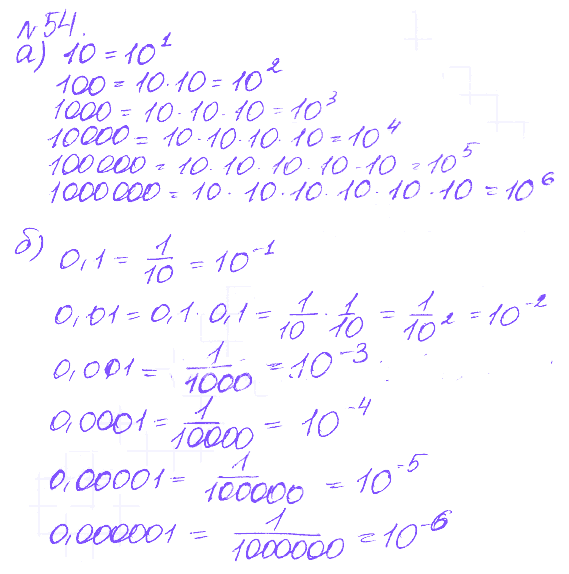 №54.
а) 10 = 10¹
100 = 10·10 = 10²
1000 = 10·10·10 = 10³
10000 = 10·10·10·10 = 10⁴
100000 = 10·10·10·10·10 = 10⁵
1000000 = 10·10·10·10·10·10 = 10⁶
б) 0,1 = 1/10 = 10⁻¹
0,01 = 0,1·0,1 = 1/10 · 1/10 = 1/10² = 10⁻²
0,001 = 1/1000 = 10⁻³
0,0001 = 1/10000 = 10⁻⁴
0,00001 = 1/100000 = 10⁻⁵
0,000001 = 1/1000000 = 10⁻⁶